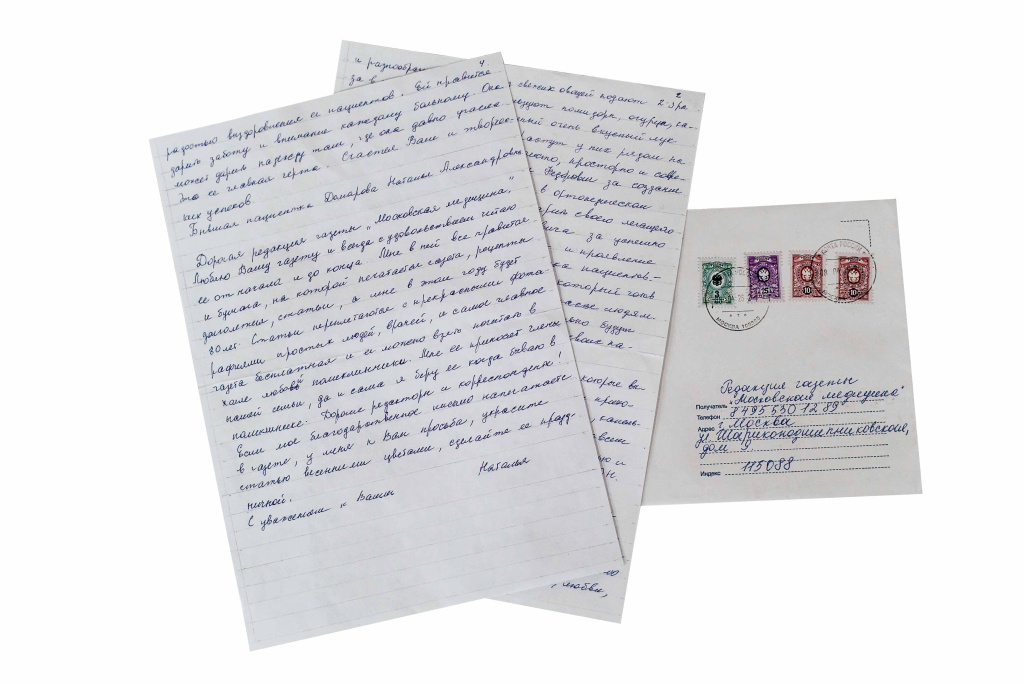 4
радостью выздоровления ее пациентов. Ей нравится
дарить заботу и внимание каждому больному. Она
может дарить надежду там, где она давно угасла.
Это ее главная черта. Счастья Вам и творчес-
ких успехов.
Бывшая пациентка Домарова Наталья Александровна
Дорогая редакция газеты „Московская медицина”,
Люблю Вашу газету и всегда с удовольствием читаю
ее от начала и до конца. Мне в ней все нравится
и бумага, на которой печатается газета, рецепты
долголетия, статьи, а мне в этом году будет
80 лет. Статьи переплетаются с прекрасными фото
графиями простых людей, врачей, и самое главное
газета бесплатная и ее можно взять почитать в
холле любой поликлиники. Мне ее приносят члены
нашей семьи, да и сама я беру ее когда бываю в
поликлинике. Дорогие редакторы и корреспонденты!
Если мое благодарственное письмо напечатаете
в газете, у меня к Вам просьба, украсите
статью весенними цветами, сделайте ее празд-
ничной.
С уважением к Вам Наталья
2
и разнообраз
за в
свежих овощей подают 2-3 ра
помидоры, огурцы, ка-
очень вкусный лук
растут у них рядом на
просторно и совре
Федоровны за создание
в ортопедическом
своего лечащего
за успешно
и проявление
пациентов-
который готов
людям.
будут
которые вы
всем
и
любви,
Редакция газеты
Получатель „Московская медицина”
Телефон 8 495 530 12 89
Адрес г. Москва
ул. Шарикоподшипниковская,
дом 9.
Индекс 115088
25
10
10
МОСКВА